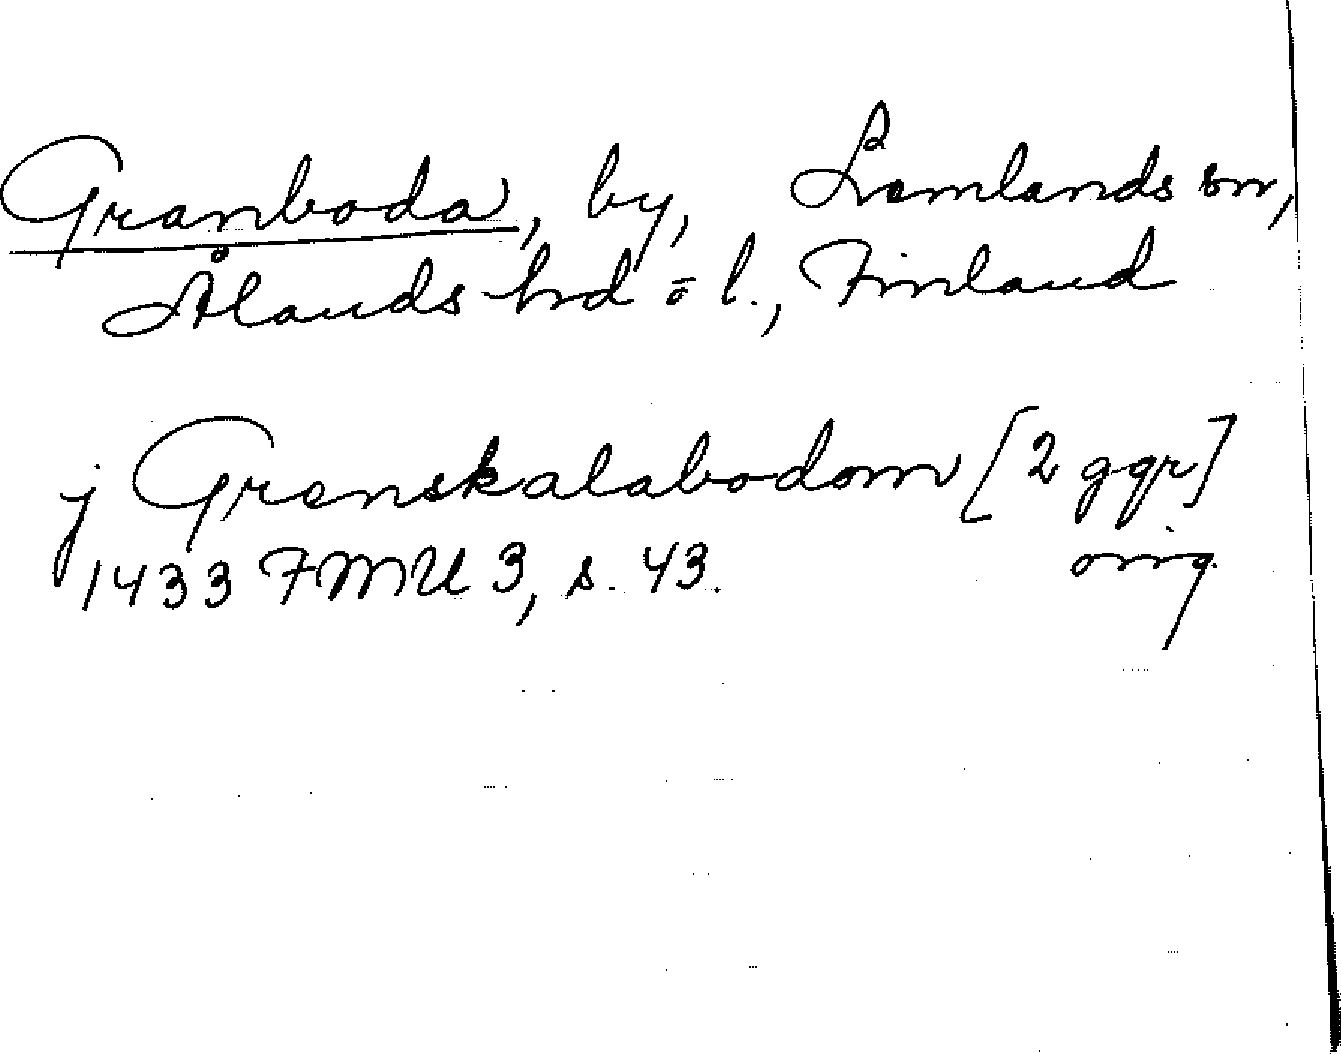 Granboda, by, Lemlands sn,
Ålands hd o l., Finland
j Grenskalabodom [2 ggr]
1433 FMU 3, s. 43. orig.